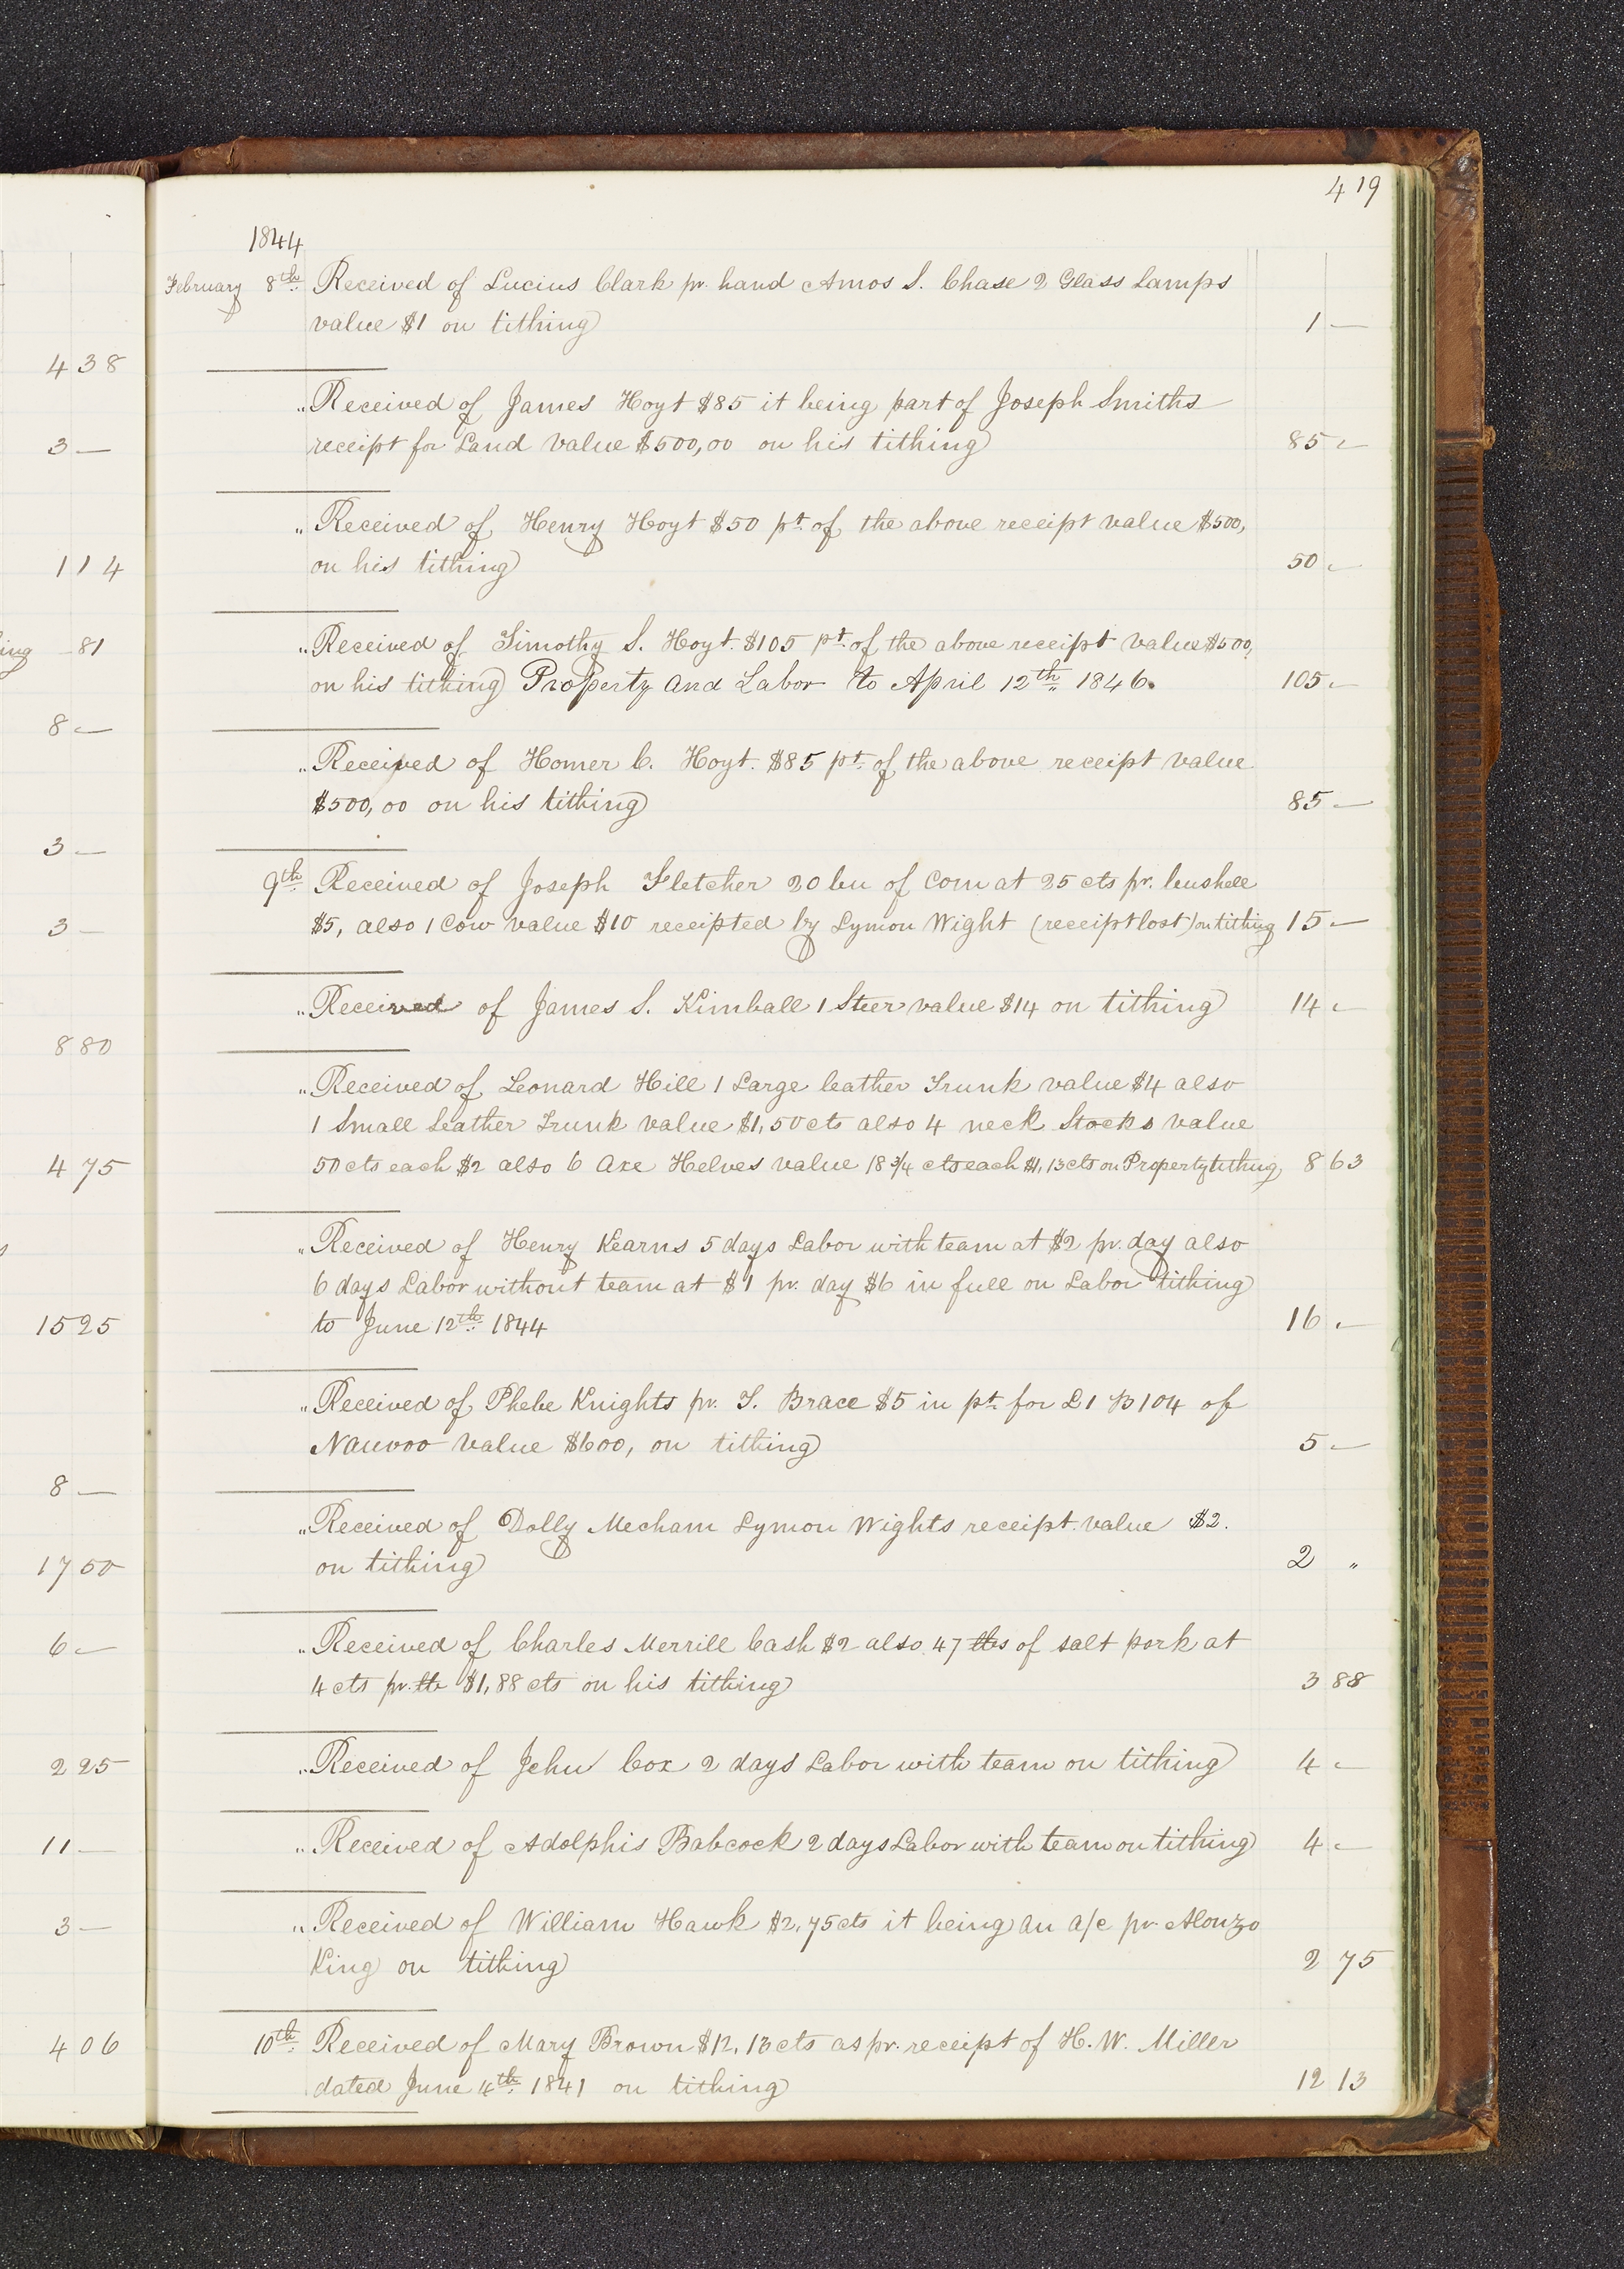 419
1844
February 8th Received of Lucius Clark pr. hand Amos S. Chase 2 Glass Lamps
value $1 on tithing 1 —
" Received of James Hoyt $85 it being part of Joseph Smiths
receipt for Land value $500,00 on his tithing 85 —
" Received of Henry Hoyt $50 pt. of the above receipt value $500,
on his tithing 50 —
" Received of Timothy S. Hoyt. $105 pt. of the above receipt value $500,
on his tithing Property and Labor to April 12th 1846. 105 —
" Received of Homer C. Hoyt. $85 pt. of the above receipt value
$500,00 on his tithing 85 —
9th Received of Joseph Fletcher 20 bu of Corn at 25 cts pr. bushell
$5, also 1 Cow value $10 receipted by Lymon Wight (receipt lost) on tithing 15 —
" Received of James S. Kimball 1 Steer value $14 on tithing 14 —
" Received of Leonard Hill 1 Large leather Trunk value $4 also
1 Small Leather Trunk value $1,50 cts also 4 neck Stocks value
50 cts each $2 also 6 Axe Helves value 18 3/4 cts each $1,13 cts on Property tithing 8 63
" Received of Henry Kearns 5 days Labor with team at $2 pr. day also
6 days Labor without team at $1 pr. day $6 in full on Labor tithing
to June 12th 1844 16 —
" Received of Phebe Knights pr. T. Brace $5 in pt. for L1 B104 of
Nauvoo value $600, on tithing 5 —
" Received of Dolly Mecham Lymon Wights receipt value $2.
on tithing 2 "
" Received of Charles Merrill Cash $2 also 47 lbs of salt pork at
4 cts pr. lb $1,88 cts on his tithing 3 88
" Received of Jehu Cox 2 days Labor with team on tithing 4 —
" Received of Adolphis Babcock 2 days Labor with team on tithing 4 —
" Received of William Hawk $2,75 cts it being an a/c pr Alonzo
King on tithing 2 75
10th Received of Mary Brown $12,13 cts as pr. receipt of H. W. Miller
dated June 4th 1841 on tithing 12 13
4 38
3 —
1 14
ing — 81
8 —
3 —
3 —
8 80
4 75
s
15 25
8 —
17 50
6 —
2 25
11 —
3 —
4 06